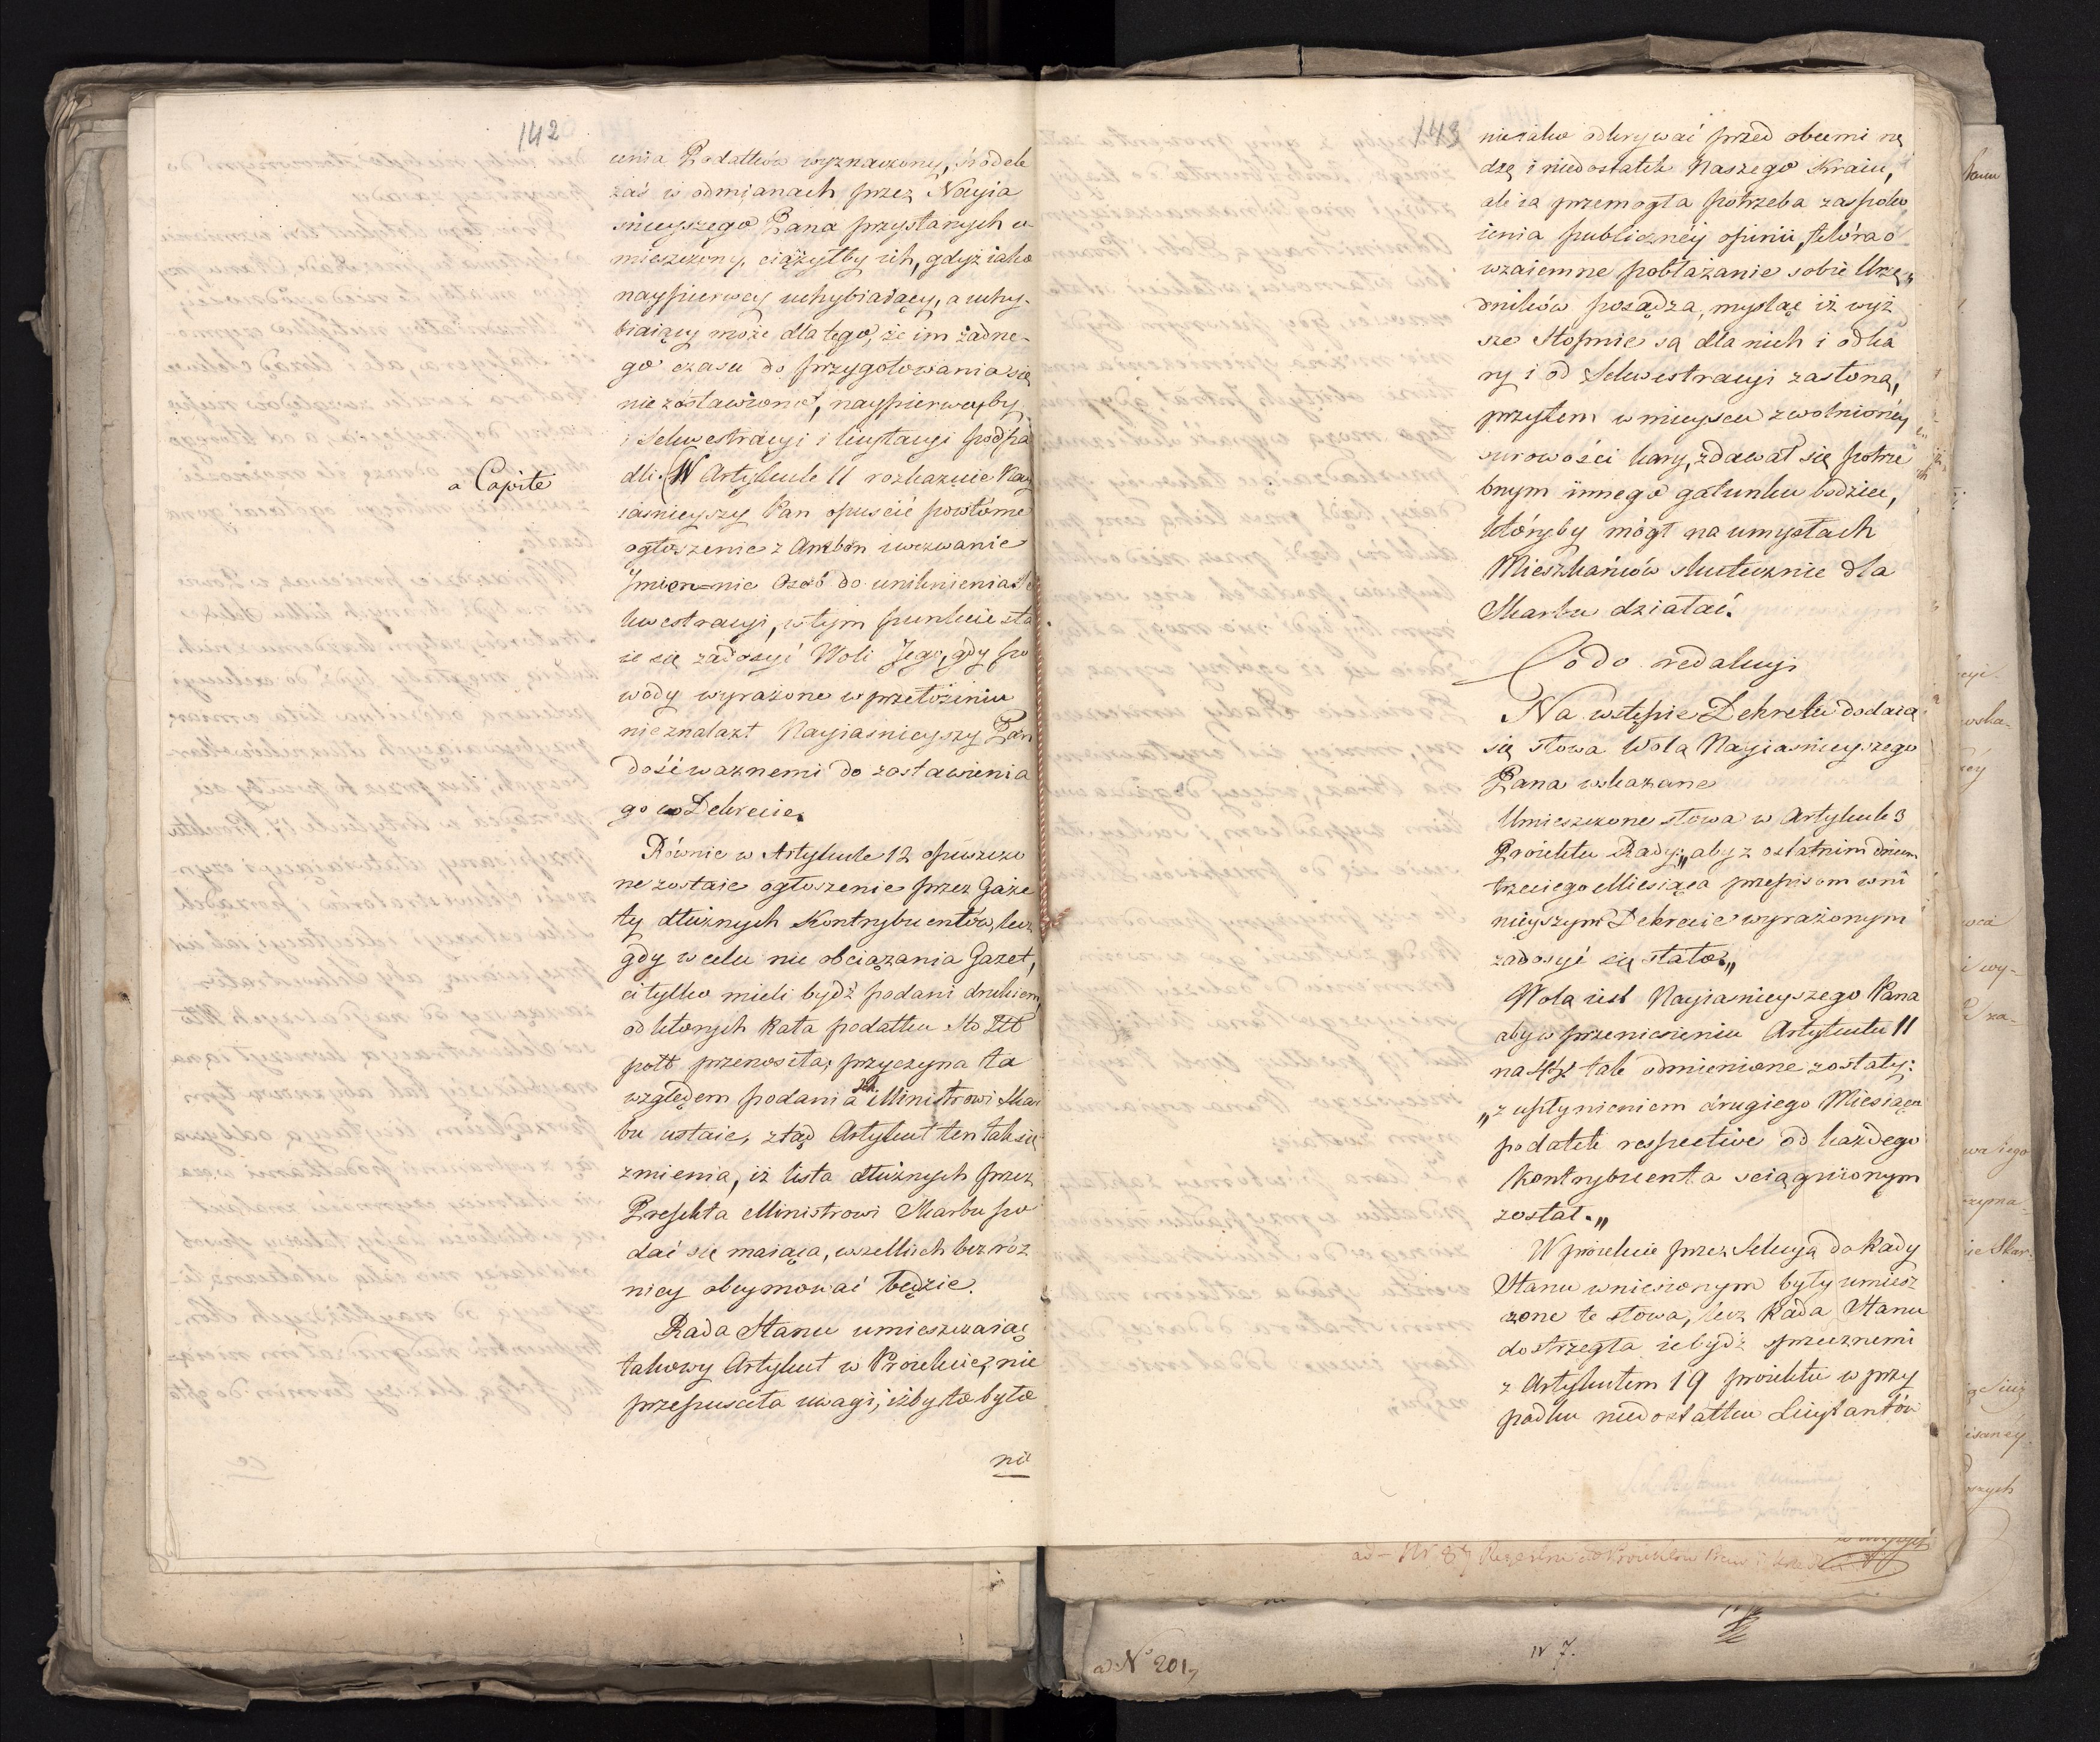 142
cenia Podatków wyznaczony, środek
zaś w odmianach przez Nayia
śnieyszego Pana przysłanych u-
mieszczony, ciążyłby ich, gdyż iako
naypierwey uchybiaiący, a uchy-
biaiący może dla tego, że im żadne-
go czasu do przygotowania się
nie zostawiono, naypierwey by
i Sekwestracyi i licytacyi podpa
dli. (W Artykule 11 rozkazuie Nay
a Capite
iaśnieyszy Pan opuścić powtórne
ogłoszenie z Ambon i wezwanie
Jmiennie Osób do uniknienia Se
kwestracyi, w tym punkcie sta
ie się zadosyć Woli Jego, gdy po
wody wyrażone w przełożeniu
nieznalazł Nayiaśnieyszy Pan
dość ważnemi do zostawienia
go w Dekrecie.
Równie w Artykule 12 opuszczo
ne zostaie ogłoszenie przez Gaze
ty dłużnych Kontrybuentów, lecz
gdy w celu nie obciążania Gazet,
ci tylko mieli bydź podani drukiem,
od których Rata podatku Sto Złt
polt przenosiła; przyczyna ta
względem podania ich Ministrowi Skar
bu ustaie, ztąd Artykuł ten tak się
zmienia, iż lista dłużnych przez
Prefekta Ministrowi Skarbu po
dać się maiąca, wszelkich bez róż
nicy obeymować będzie.
Rada Stanu umieszczaiąc
takowy Artykuł w Proiekcie, nie
przepuściła uwagi, iżby to było
nie
143
nieiako odkrywać przed obcemi nę
dzę i niedostatek Naszego Kraiu,
ale ią przemogła potrzeba zaspoko
ienia publicznéy opinii, która o
wzaiemne pobłażanie sobie Urzę„
dników posądza, mysląc iż wyż
sze Stopnie są dla nich i od ka
ry i od Sekwestracyi zasłoną,
przytem w mieyscu zwolnionéy
surowości kary, zdawał się potrze
bnym innego gatunku bodziec,
któryby mógł na umysłach
Mieszkańców skutecznie dla
Skarbu działać.
Co do redakcyi
Na wstępie Dekretu dodaią
się słowa Wolą Nayiaśnieyszego
Pana wskazane
Umieszczone słowa w Artykule 3
Proiektu Rady: „aby z ostatnim dniem
trzeciego Miesiąca przepisom w ni
nieyszym Dekrecie wyrażonym
zadosyć się stało.„
Wolą iest Nayiaśnieyszego Pana
aby w przeniesieniu Artykułu 11
na tak odmienione zostały:
„z upłynieniem drugiego Miesiąca
podatek respective od każdego
Kontrybuenta sciągniionym
został.„
W proiekcie przez Sekcyą do Rady
Stanu wniesionym były umiesz
zone te słowa, lecz Rada Stanu
dostrzegła ie bydź sprzecznemi
z Artykułem 19 proiektu w przy
padku niedostatku Licytantów
ad N° 201,
N 7.